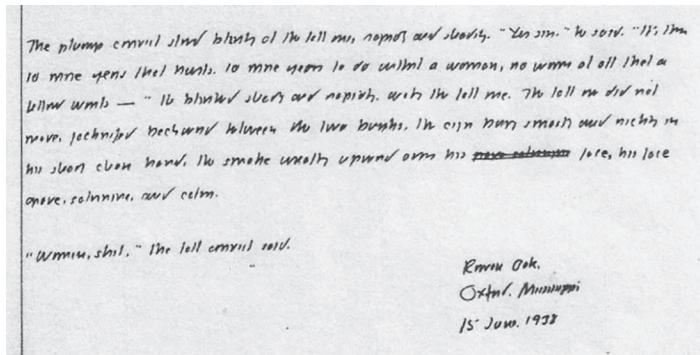 The plump convict stood blinking at the tall one, rapidly and steadily. "Yes sir." he said. "It's them
10 more years that hurts. 10 more years to do without a woman, no woman at all that a
fellow wants — " He blinked steadily and rapidly, watching the tall one. The tall one did not
move, jacknifed backward between the two bunks, the cigar burning smoothly and richly in
his clean hand, the smoke wreathing upward across his face, his face
grave, saturnine, and calm.
"Women, shit," the tall convict said.
Rowan Oak.
Oxford. Mississippi
15 June. 1938